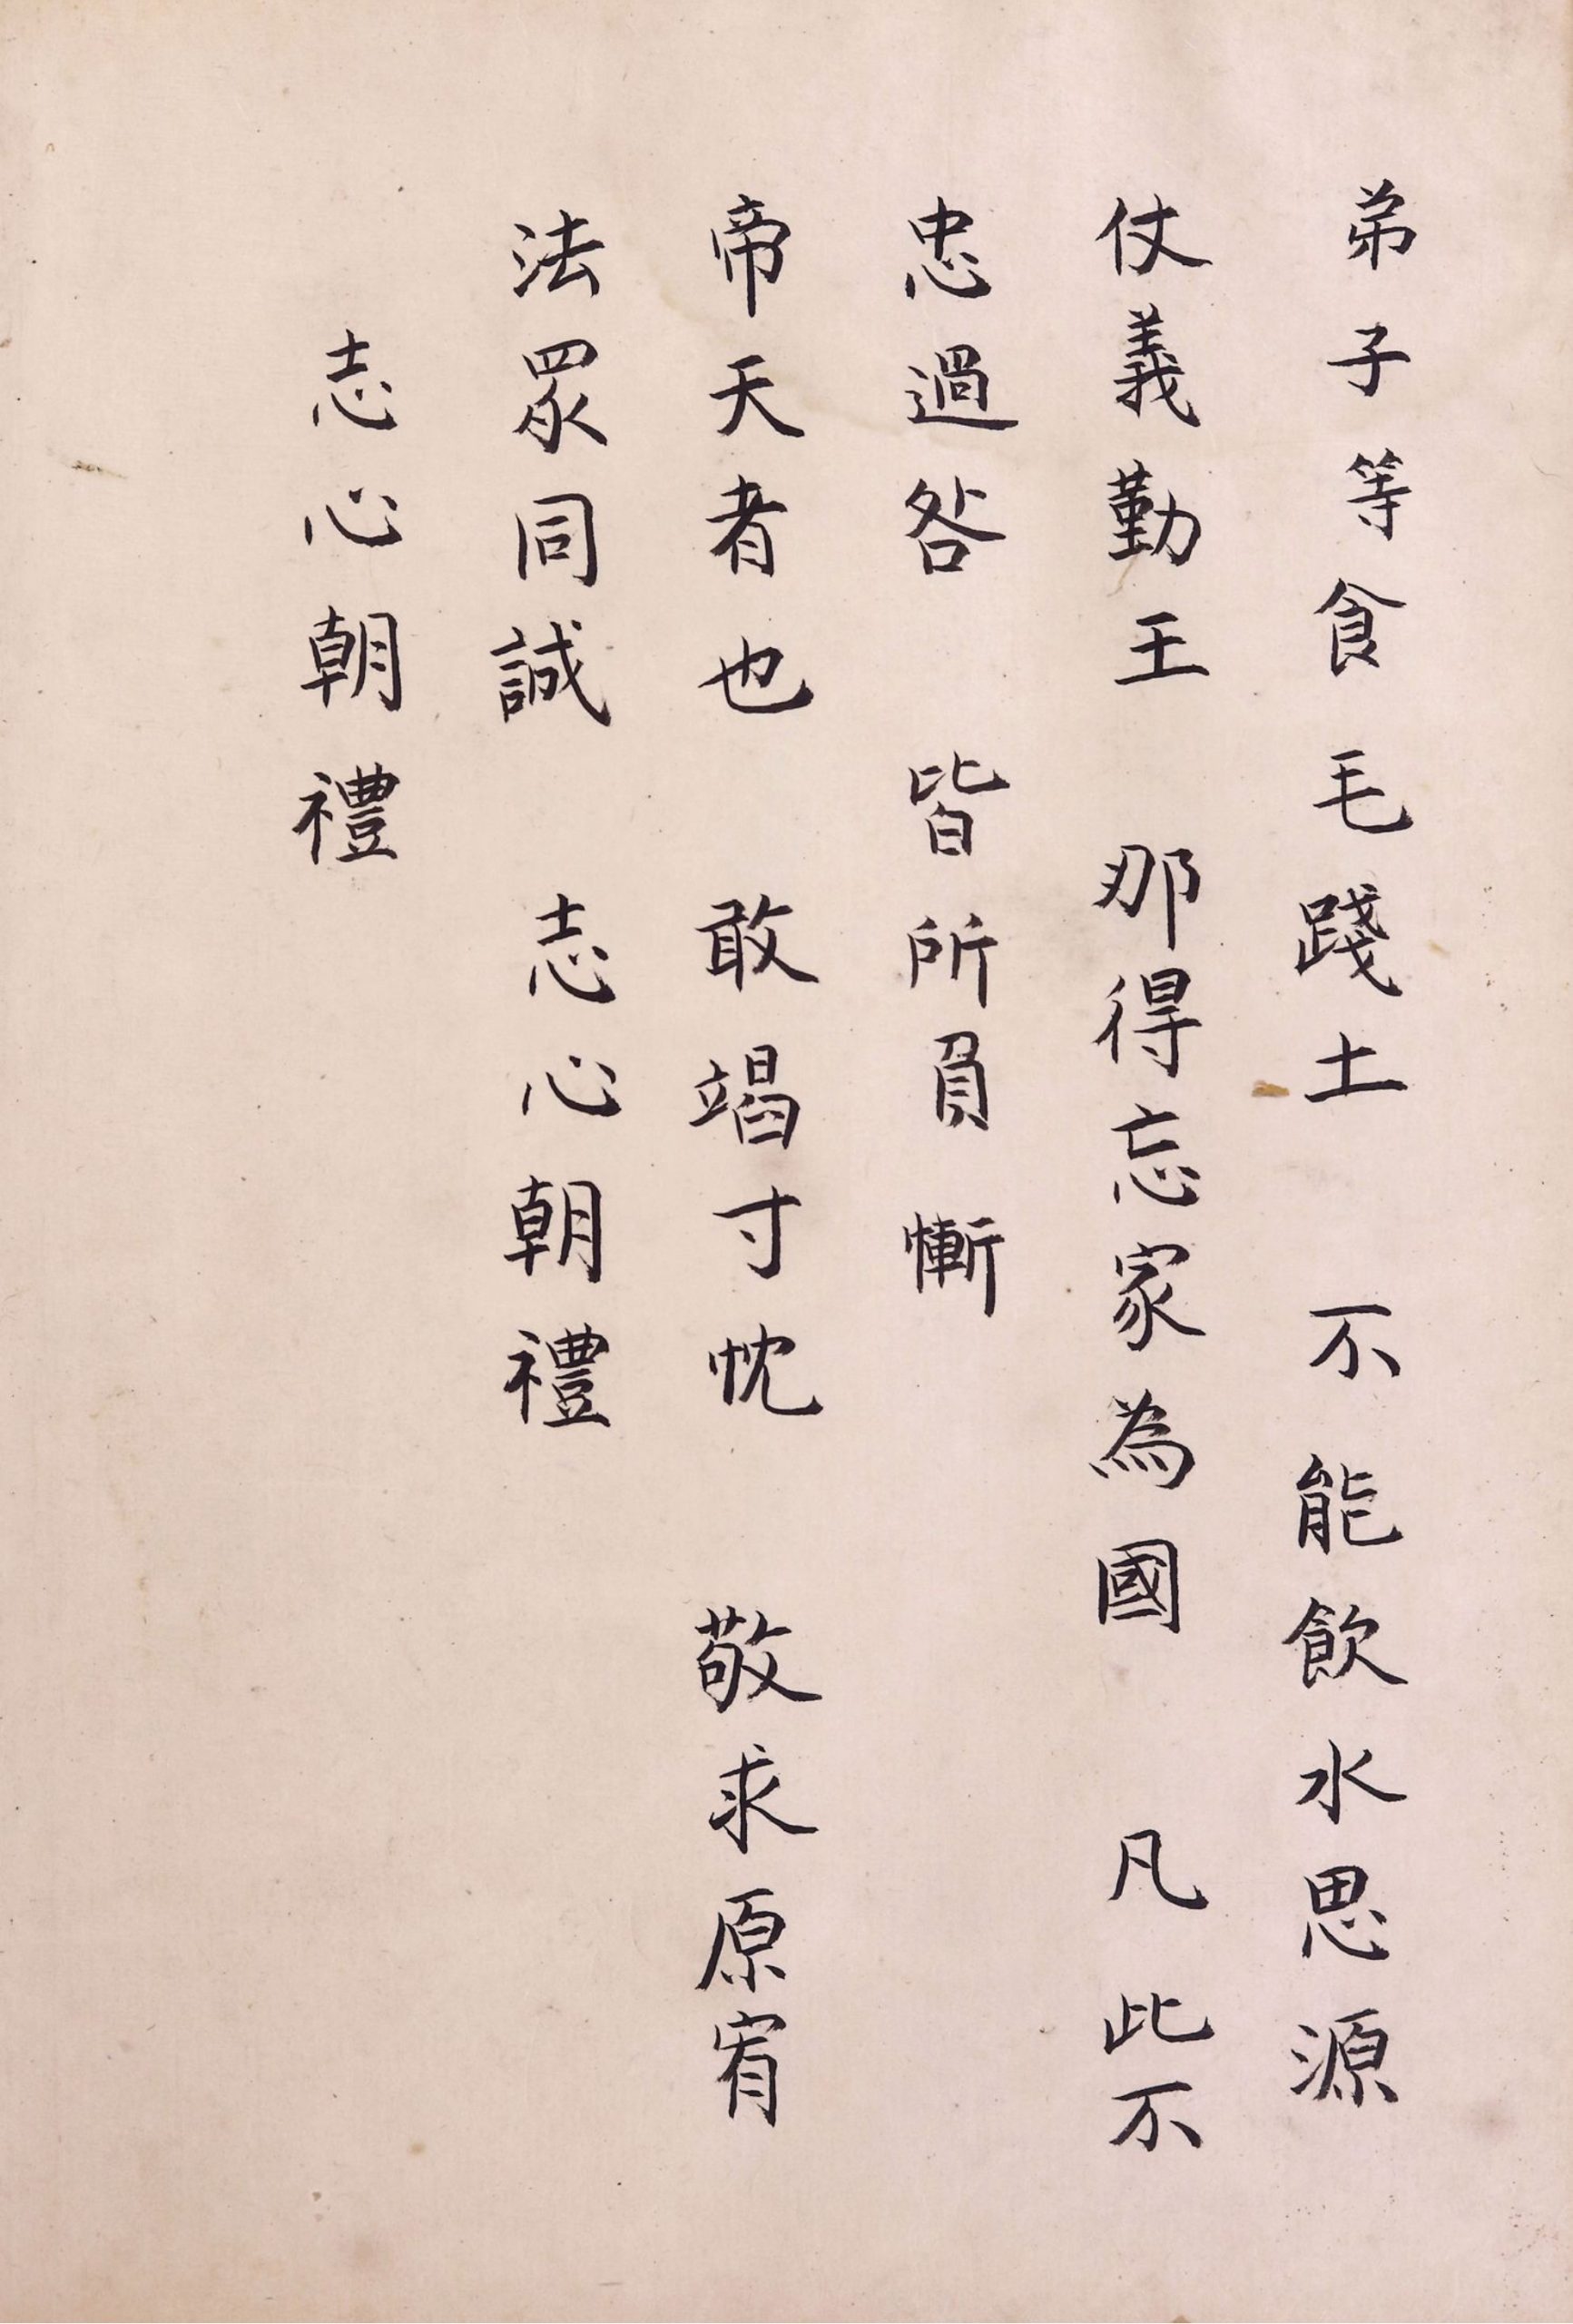 弟子等食毛踐土 不能飲水思源
仗義勤王 那得忘家為國 凡此不
忠過咎 皆所負慚
帝天者也 敢竭寸忱 敬求原宥
法眾同誠 志心朝禮
志心朝禮